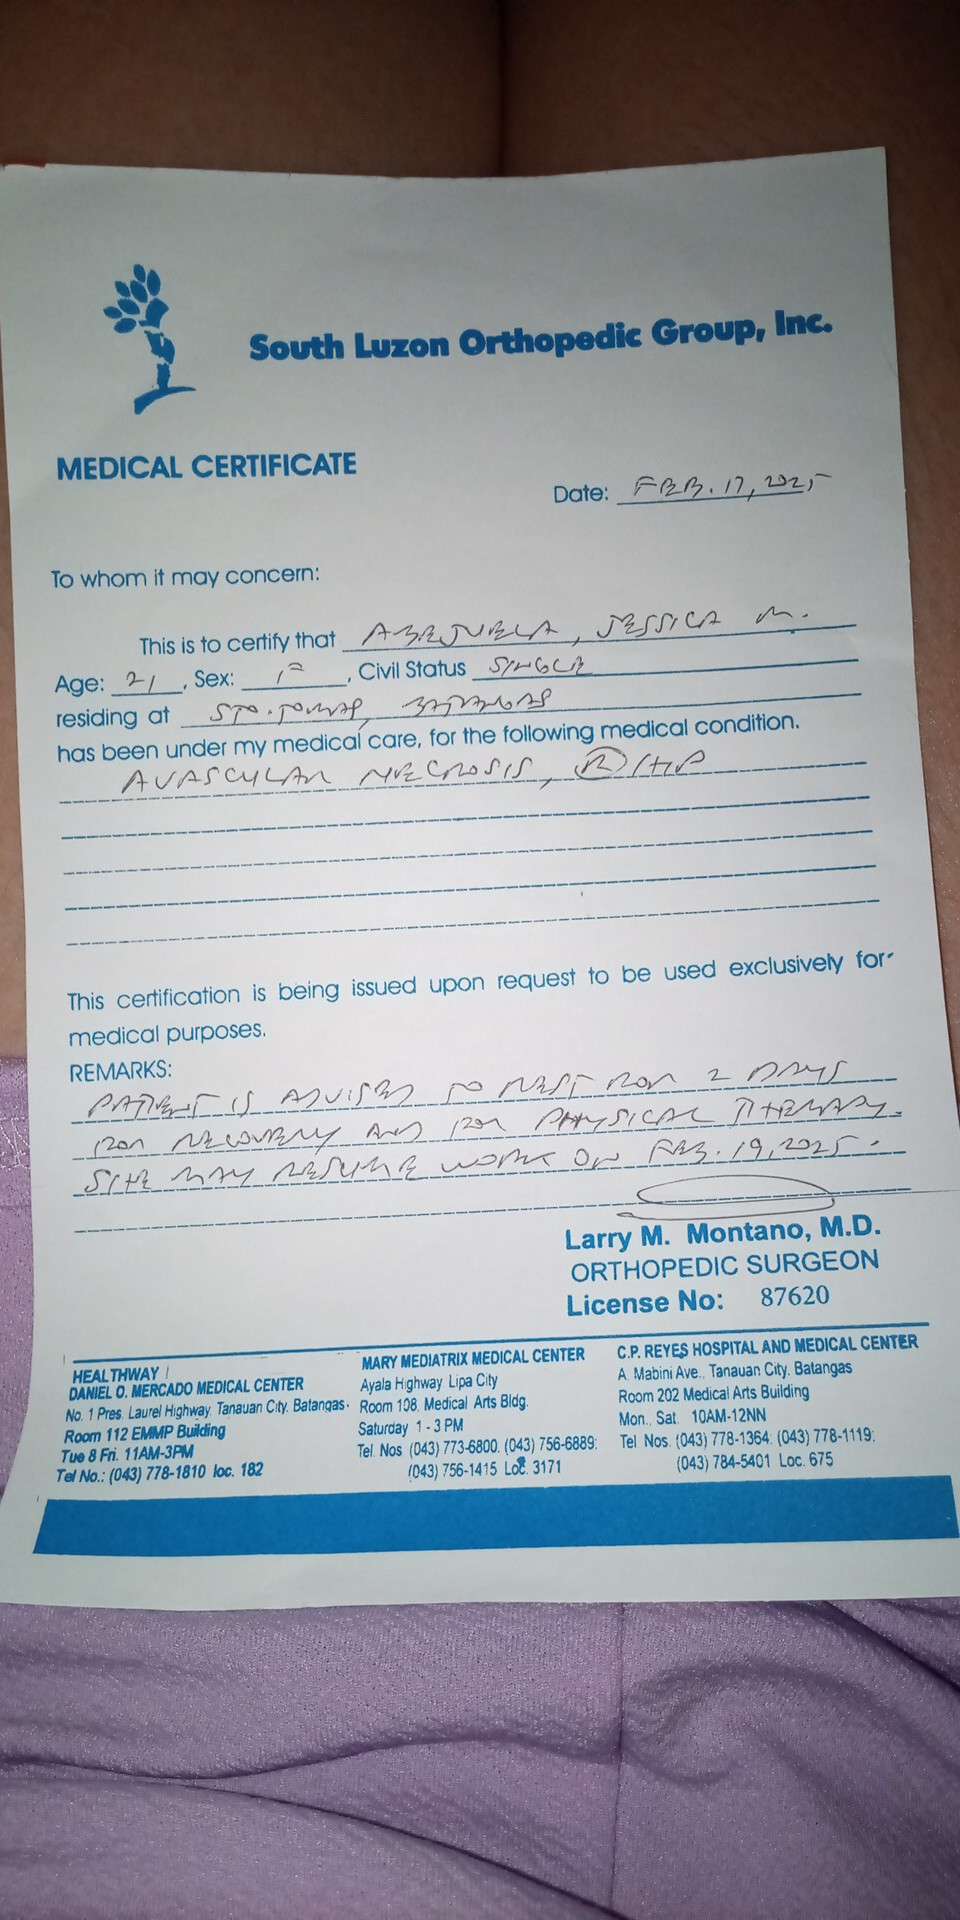 South Luzon Orthopedic Group, Inc.
MEDICAL CERTIFICATE
Date: FEB. 17, 2025
To whom it may concern:
This is to certify that ABEJUELA, JESSICA M.
Age: 21, Sex: F, Civil Status SINGLE
residing at STO. TOMAS, BATANGAS
has been under my medical care, for the following medical condition.
AVASCULAR NECROSIS, Ⓡ HIP
This certification is being issued upon request to be used exclusively for
medical purposes.
REMARKS:
PATIENT IS ADVISED TO REST FOR 2 DAYS
FOR RECOVERY AND FOR PHYSICAL THERAPY.
SHE MAY RESUME WORK ON FEB. 19, 2025.
Larry M. Montano, M.D.
ORTHOPEDIC SURGEON
License No: 87620
HEALTHWAY
DANIEL O. MERCADO MEDICAL CENTER
No. 1 Pres. Laurel Highway, Tanauan City, Batangas.
Room 112 EMMP Building
Tue 8 Fri. 11AM-3PM
Tel No.: (043) 778-1810 loc. 182
MARY MEDIATRIX MEDICAL CENTER
Ayala Highway Lipa City
Room 108, Medical Arts Bldg.
Saturday 1 - 3 PM
Tel. Nos (043) 773-6800, (043) 756-6889:
(043) 756-1415 Loc. 3171
C.P. REYES HOSPITAL AND MEDICAL CENTER
A. Mabini Ave., Tanauan City. Batangas
Room 202 Medical Arts Building
Mon., Sat. 10AM-12NN
Tel Nos. (043) 778-1364: (043) 778-1119:
(043) 784-5401 Loc. 675